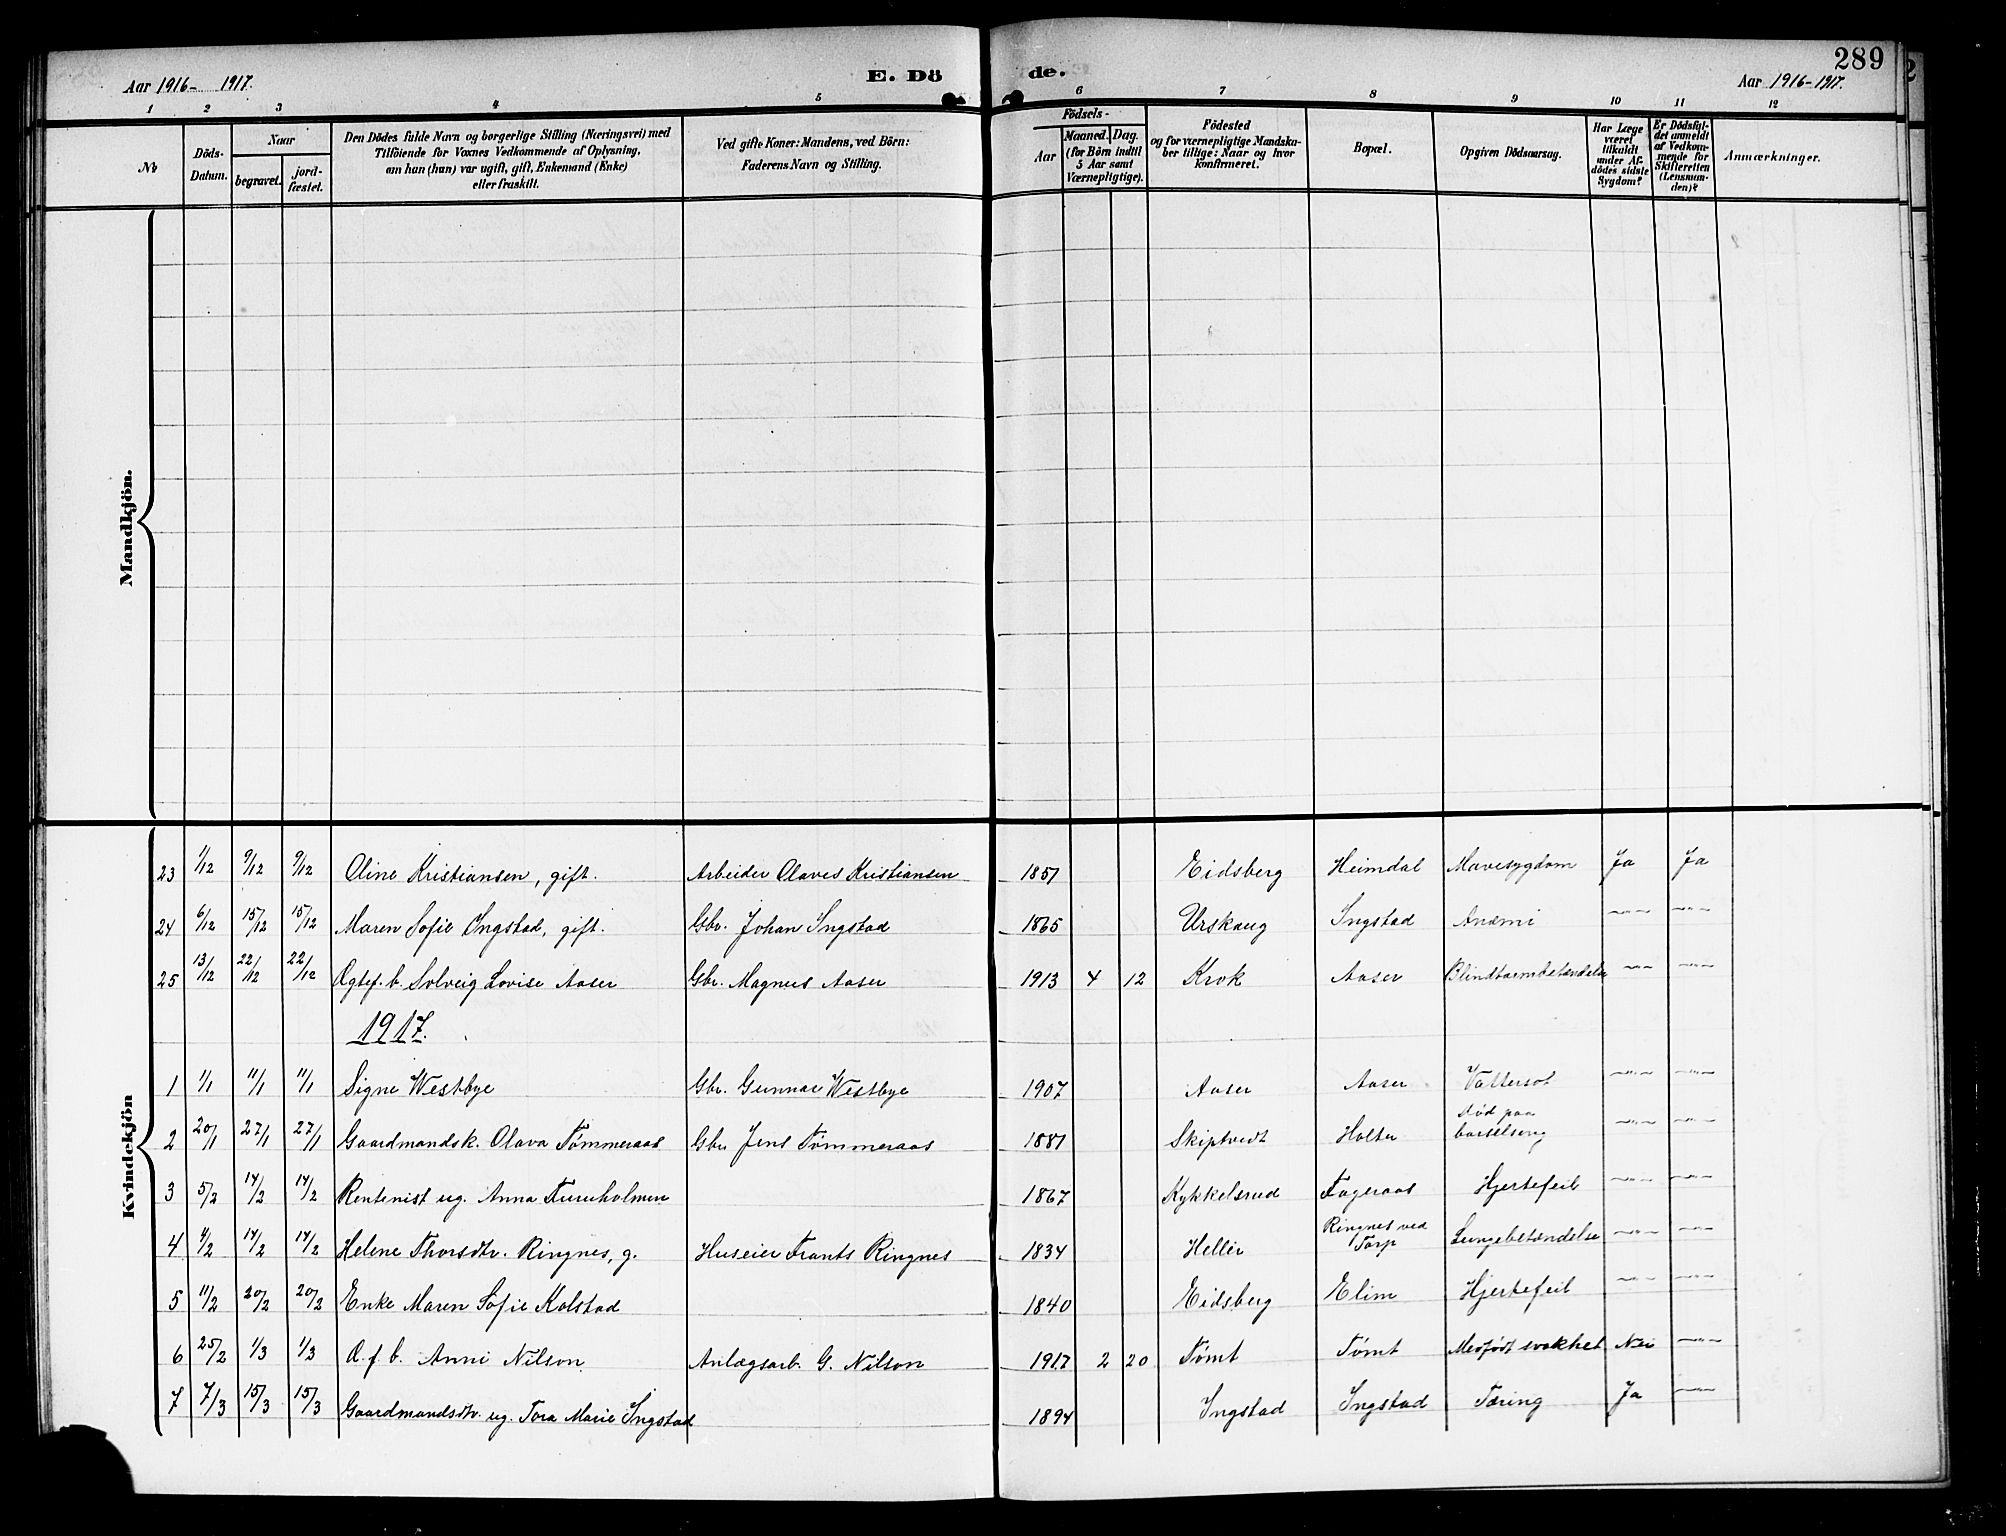 289
Aar 1916- 1917.
E. Dö
de.
Aar 1916-1917.
1 2 3 4 5 6 7 8 9 10 11 12
No
Döds-Datum.
Naar
begravet.
jord-fæstet.
Den Dödes fulde Navn og borgerlige Stilling (Næringsvei) med
Tilföiende for Voxnes Vedkommende af Oplysning,
om han (hun) var ugift, gift, Enkemand (Enke)
eller fraskilt.
Ved gifte Koner: Mandens, ved Börn:
Faderens Navn og Stilling.
Födsels-
Aar
Maaned. Dag.
(for Börn indtil
5 Aar samt
Værnepligtige).
Födested
og for værnepligtige Mandska-
ber tillige: Naar og hvor
konfirmeret.
Bopæl.
Opgiven Dödsaarsag.
Har Læge
været
tilkaldt
under Af-
dödes sidste
Sygdom?
Er Dödsfal-
det anmeldt
af Vedkom-
mende for
Skifteretten
(Lensman-
den)?
Anmærkninger.
Mandkjön.
Kvindekjön
23 1/12 9/12 9/12 Oline Kristiansen, gift. Arbeider Olaves Kristiansen 1851 Eidsberg Heimdal Mavesygdom Ja Ja
24 6/12 15/12 15/12 Maren Sofie Ingstad, gift. Gbr. Johan Ingstad 1865 Urskaug Ingstad Anæmi —"— —"—
25 13/12 22/12 22/12 Ægtef. b. Solveig Lovise Aaser Gbr. Magnus Aaser 1913 4 12 Krok Aaser Blindtarmbetændelse —"— —"—
1917.
1 1/1 11/1 11/1 Signe Westbye Gbr. Gunnar Westbye 1907 Aaser Aaser Vattersot —"— —"—
2 20/1 27/1 27/1 Gaardmandsk. Olava Tømmeraas Gbr Jens Tømmeraas 1881 Skiptvedt Holter død paa barselseng —"— —"—
3 5/2 14/2 14/2 Rentenist ug. Anna Furuholmen 1867 Kykkelsrud Fageraas Hjertefeil —"— —"—
4 4/2 14/2 14/2 Helene Thorsdtr. Ringnes, g. Huseier Frants Ringnes 1834 Heller Ringnes ved Torp Lungebetændelse —"— —"—
5 11/2 20/2 20/2 Enke Maren Sofie Kolstad 1840 Eidsberg Elim Hjertefeil —"— —"—
6 25/2 1/3 1/3 Æ. f. b. Anni Nilson Anlægsarb. G. Nilson 1917 2 20 Tømt Tømt Medfødt svakhet Nei —"—
7 7/3 15/3 15/3 Gaardmandsdtr. ug. Tora Marie Ingstad 1894 Ingstad Ingstad Tæring Ja —"—